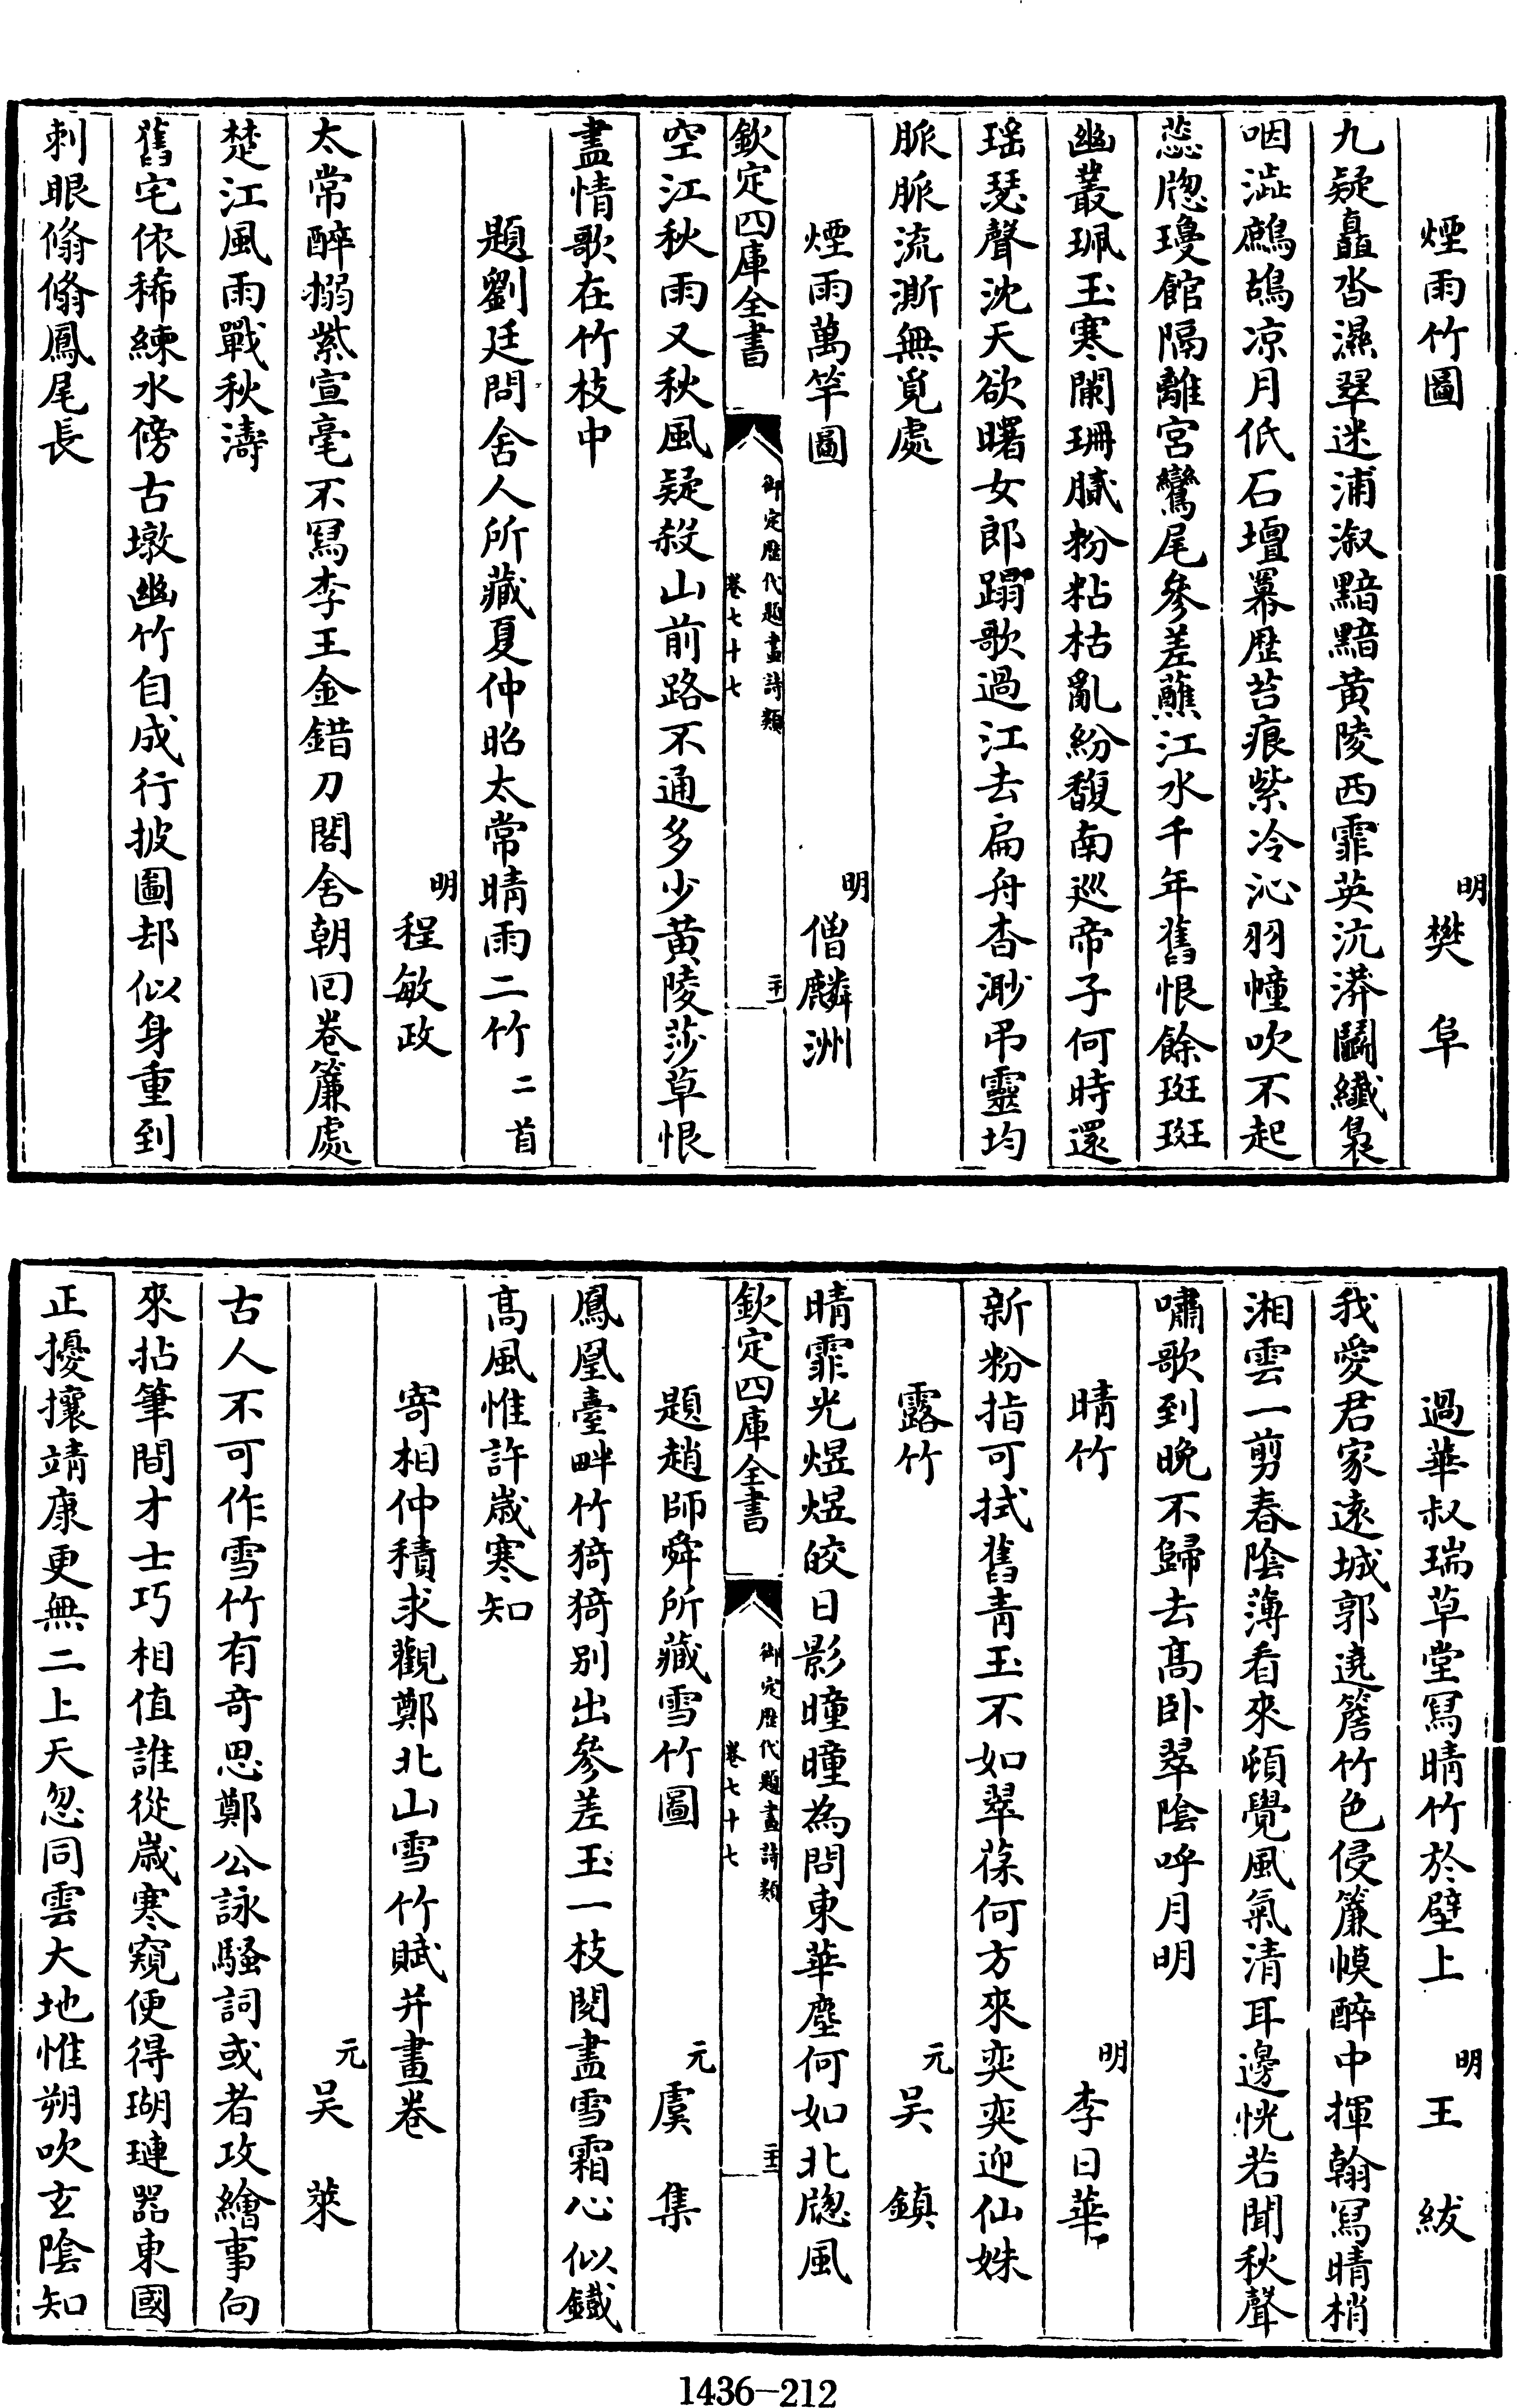 煙雨竹圖 明 樊阜
九疑矗沓濕翠迷浦溆黯黯黃陵西霏英沆漭鬭纖裊
咽澁鷓鴣凉月低石壇羃歷苔痕紫冷沁羽幢吹不起
蕊牎瓊館隔離宮鸞尾參差蘸江水千年舊恨餘斑斑
幽叢珮玉寒闌珊膩粉粘枯亂紛馥南巡帝子何時還
瑤瑟聲沈天欲曙女郎蹋歌過江去扁舟杳渺弔靈均
脈脈流澌無覓處
煙雨萬竿圖 明 僧麟洲
欽定四庫全書 御定歷代題畫詩類 卷七十七 二十一
空江秋雨又秋風疑殺山前路不通多少黃陵莎草恨
盡情歌在竹枝中
題劉廷問舍人所藏夏仲昭太常晴雨二竹 二首
明 程敏政
太常醉搦紫宣毫不冩李王金錯刀閣舍朝囘卷簾處
楚江風雨戰秋濤
舊宅依稀練水傍古墩幽竹自成行披圖却似身重到
刺眼翛翛鳳尾長
過華叔瑞草堂冩晴竹於壁上 明 王紱
我愛君家遠城郭遶簷竹色侵簾幙醉中揮翰冩晴梢
湘雲一剪春陰薄看來頓覺風氣清耳邊恍若聞秋聲
嘯歌到晚不歸去高卧翠陰呼月明
晴竹 明 李日華
新粉指可拭舊青玉不如翠葆何方來奕奕迎仙姝
露竹 元 吳鎮
晴霏光煜煜皎日影曈曈為問東華塵何如北牎風
欽定四庫全書 御定歷代題畫詩類 卷七十七 二十二
題趙師舜所藏雪竹圖 元 虞集
鳳凰臺畔竹猗猗别出參差玉一枝閱盡雪霜心似鐵
高風惟許歲寒知
寄相仲積求觀鄭北山雪竹賦并畫卷
元 吳萊
古人不可作雪竹有奇思鄭公詠騷詞或者攻繪事向
來拈筆間才士巧相值誰從歲寒窺便得瑚璉器東國
正擾攘靖康更無二上天忽同雲大地惟朔吹玄陰知
1436-212